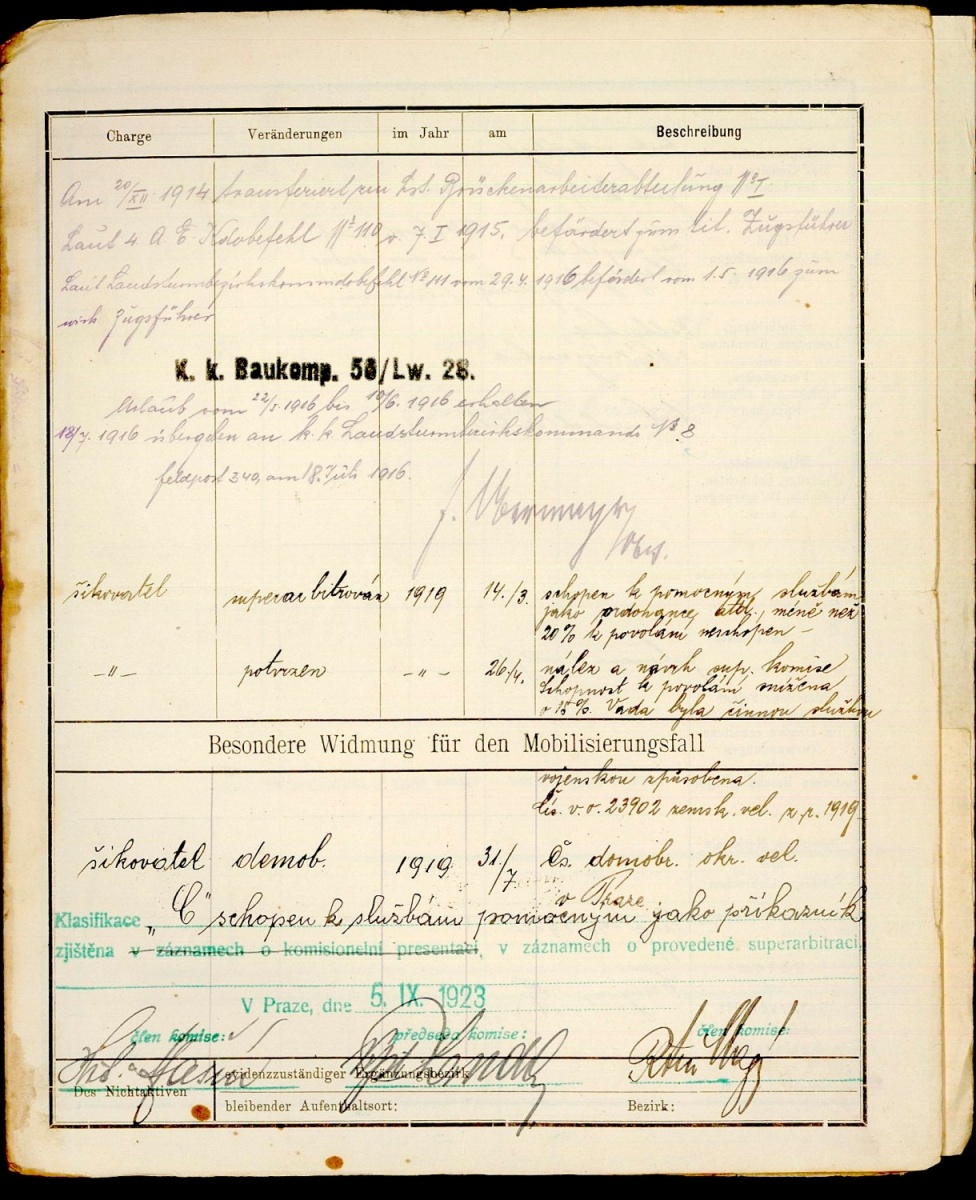 Charge Veränderungen im Jahr am Beschreibung
Am 20/XII 1914 transferiert zur Lst. Brückenarbeiterabteilung № I
Laut 4 A E Kdobefehl № 110 v. 7. I 1915. befördert zum tit. Zugsführer
Laut Landsturmbezirkskommdobefehl № 111 vom 29.4. 1916 befördert vom 1.5. 1916 zum
wirk Zugsführer
K. k. Baukomp. 56/Lw. 28.
Urlaub vom 22/5. 1916 bis 10/6. 1916 erhalten
18/7. 1916 übergeben an k. k. Landsturmbezirkskommando № 8
Feldpost 340, am 18. Juli 1916.
šikovatel superarbitrován 1919 14./3. schopen k pomocným službám
jako ordonance atd., méně než
20% k povolání neschopen –
–"– potvrzen –"– 26./4. nález a návrh sup. komise
Schopnost k povolání snížena
o 15%. Vada byla činnou službou
Besondere Widmung für den Mobilisierungsfall
vojenskou způsobena.
čís. v. o. 23902 zemsk. vel. z r. 1919.
šikovatel demob. 1919 31./7. čs. domobr. okr. vel.
v Praze
Klasifikace „C" schopen k službám pomocným jako příkazník
zjištěna v záznamech o komisionelní presentaci, v záznamech o provedené superarbitraci.
V Praze, dne 5. IX. 1923
člen komise: předseda komise: člen komise:
Des Nichtaktiven evidenzzuständiger Ergänzungsbezirk
bleibender Aufenthaltsort: Bezirk: